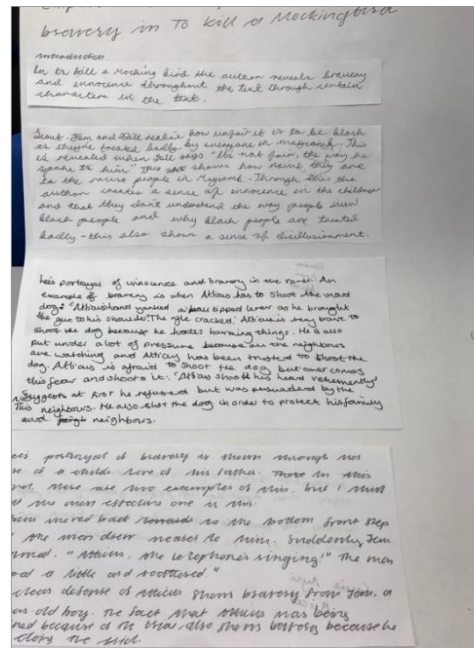 bravery in To Kill a Mockingbird
introduction
In to kill a Mocking bird the author reveals bravery
and innocence throughout the text through certain
characters in the text.
Scout, Jem and Dill realise how unfair it is to be black
as they're treated badly by everyone in maycomb. This
is revealed when Dill says "its not fair, the way he
spoke to him" this shows how naive they are
to the racist people in Maycomb. Through this the
author creates a sense of innocence in the children
and that they don't understand the way people view
black people and why black people are treated
badly - this also shows a sense of disillusionment.
Lees portrayal of innocence and bravery in the novel. An
example of bravery is when Atticus has to shoot the mad
dog: "Atticus' hand yanked a ball tipped lever as he brought
the gun to his shoulder. The rifle cracked." Atticus is very brave to
shoot the dog because he hates harming things. He is also
put under a lot of pressure because all the neighbours
are watching and Atticus has been trusted to shoot the
dog. Atticus is afraid to shoot the dog but over comes
this fear and shoots it. "Atticus shook his head vehemently"
suggests at first he refused but was persuaded by the
neighbours. He also shot the dog in order to protect his family
and neighbours.
portrayal of bravery is shown through
of a childs love of his father. In this
there are two examples of this, but I think
the most effective one is this
moved back to the bottom front step
the man drew nearer to him. Suddenly Jem
"Atticus, the telephone's ringing!" The men
a little and scattered."
defense of Atticus shows bravery from Jem, a
old boy. The fact that Atticus was being
because of the trial also shows bravery because he
doing the